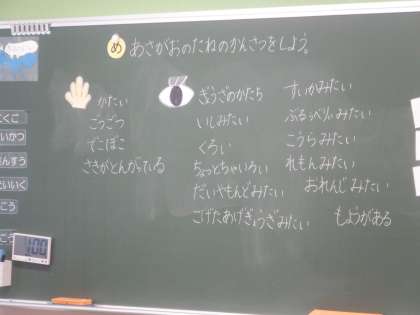 め あさがおのたねのかんさつをしよう。
かたい
ごつごつ
でこぼこ
さきがとんがっている
ぎょうざのかたち
いしみたい
くろい
ちょっとちゃいろい
だいやもんどみたい
こげたあげぎょうざみたい
すいかみたい
ぶるうべりいみたい
こうらみたい
れもんみたい
おれんじみたい
もようがある
こくご
せいかつ
さんすう
たいいく
100